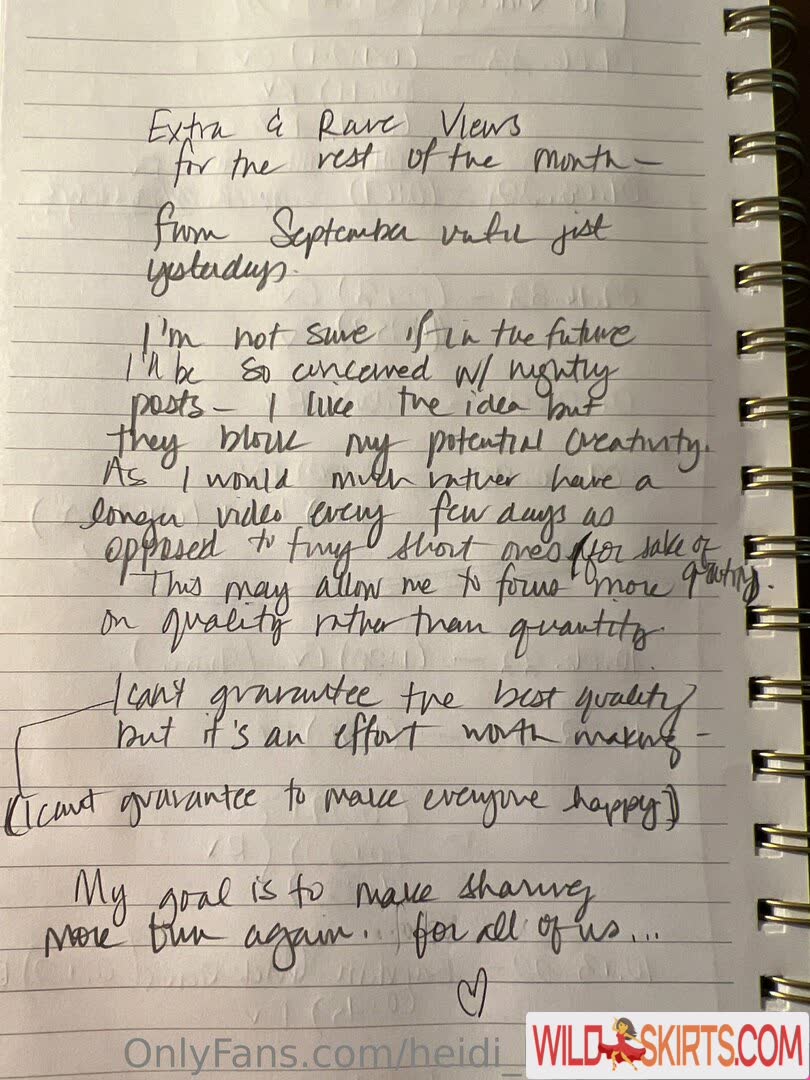 Extra & Rare Views
for the rest of the month –
from September until just
yesterday.
I'm not sure if in the future
I'll be so concerned w/ nightly
posts – I like the idea but
they block my potential creativity.
As I would much rather have a
longer video every few days as
opposed to tiny short ones (for sake of
This may allow me to focus more
on quality rather than quantity.
I can't guarantee the best quality
but it's an effort worth making –
(I can't guarantee to make everyone happy)
My goal is to make sharing
more fun again... for all of us...
OnlyFans.com/heidi_
WILD SKIRTS.COM